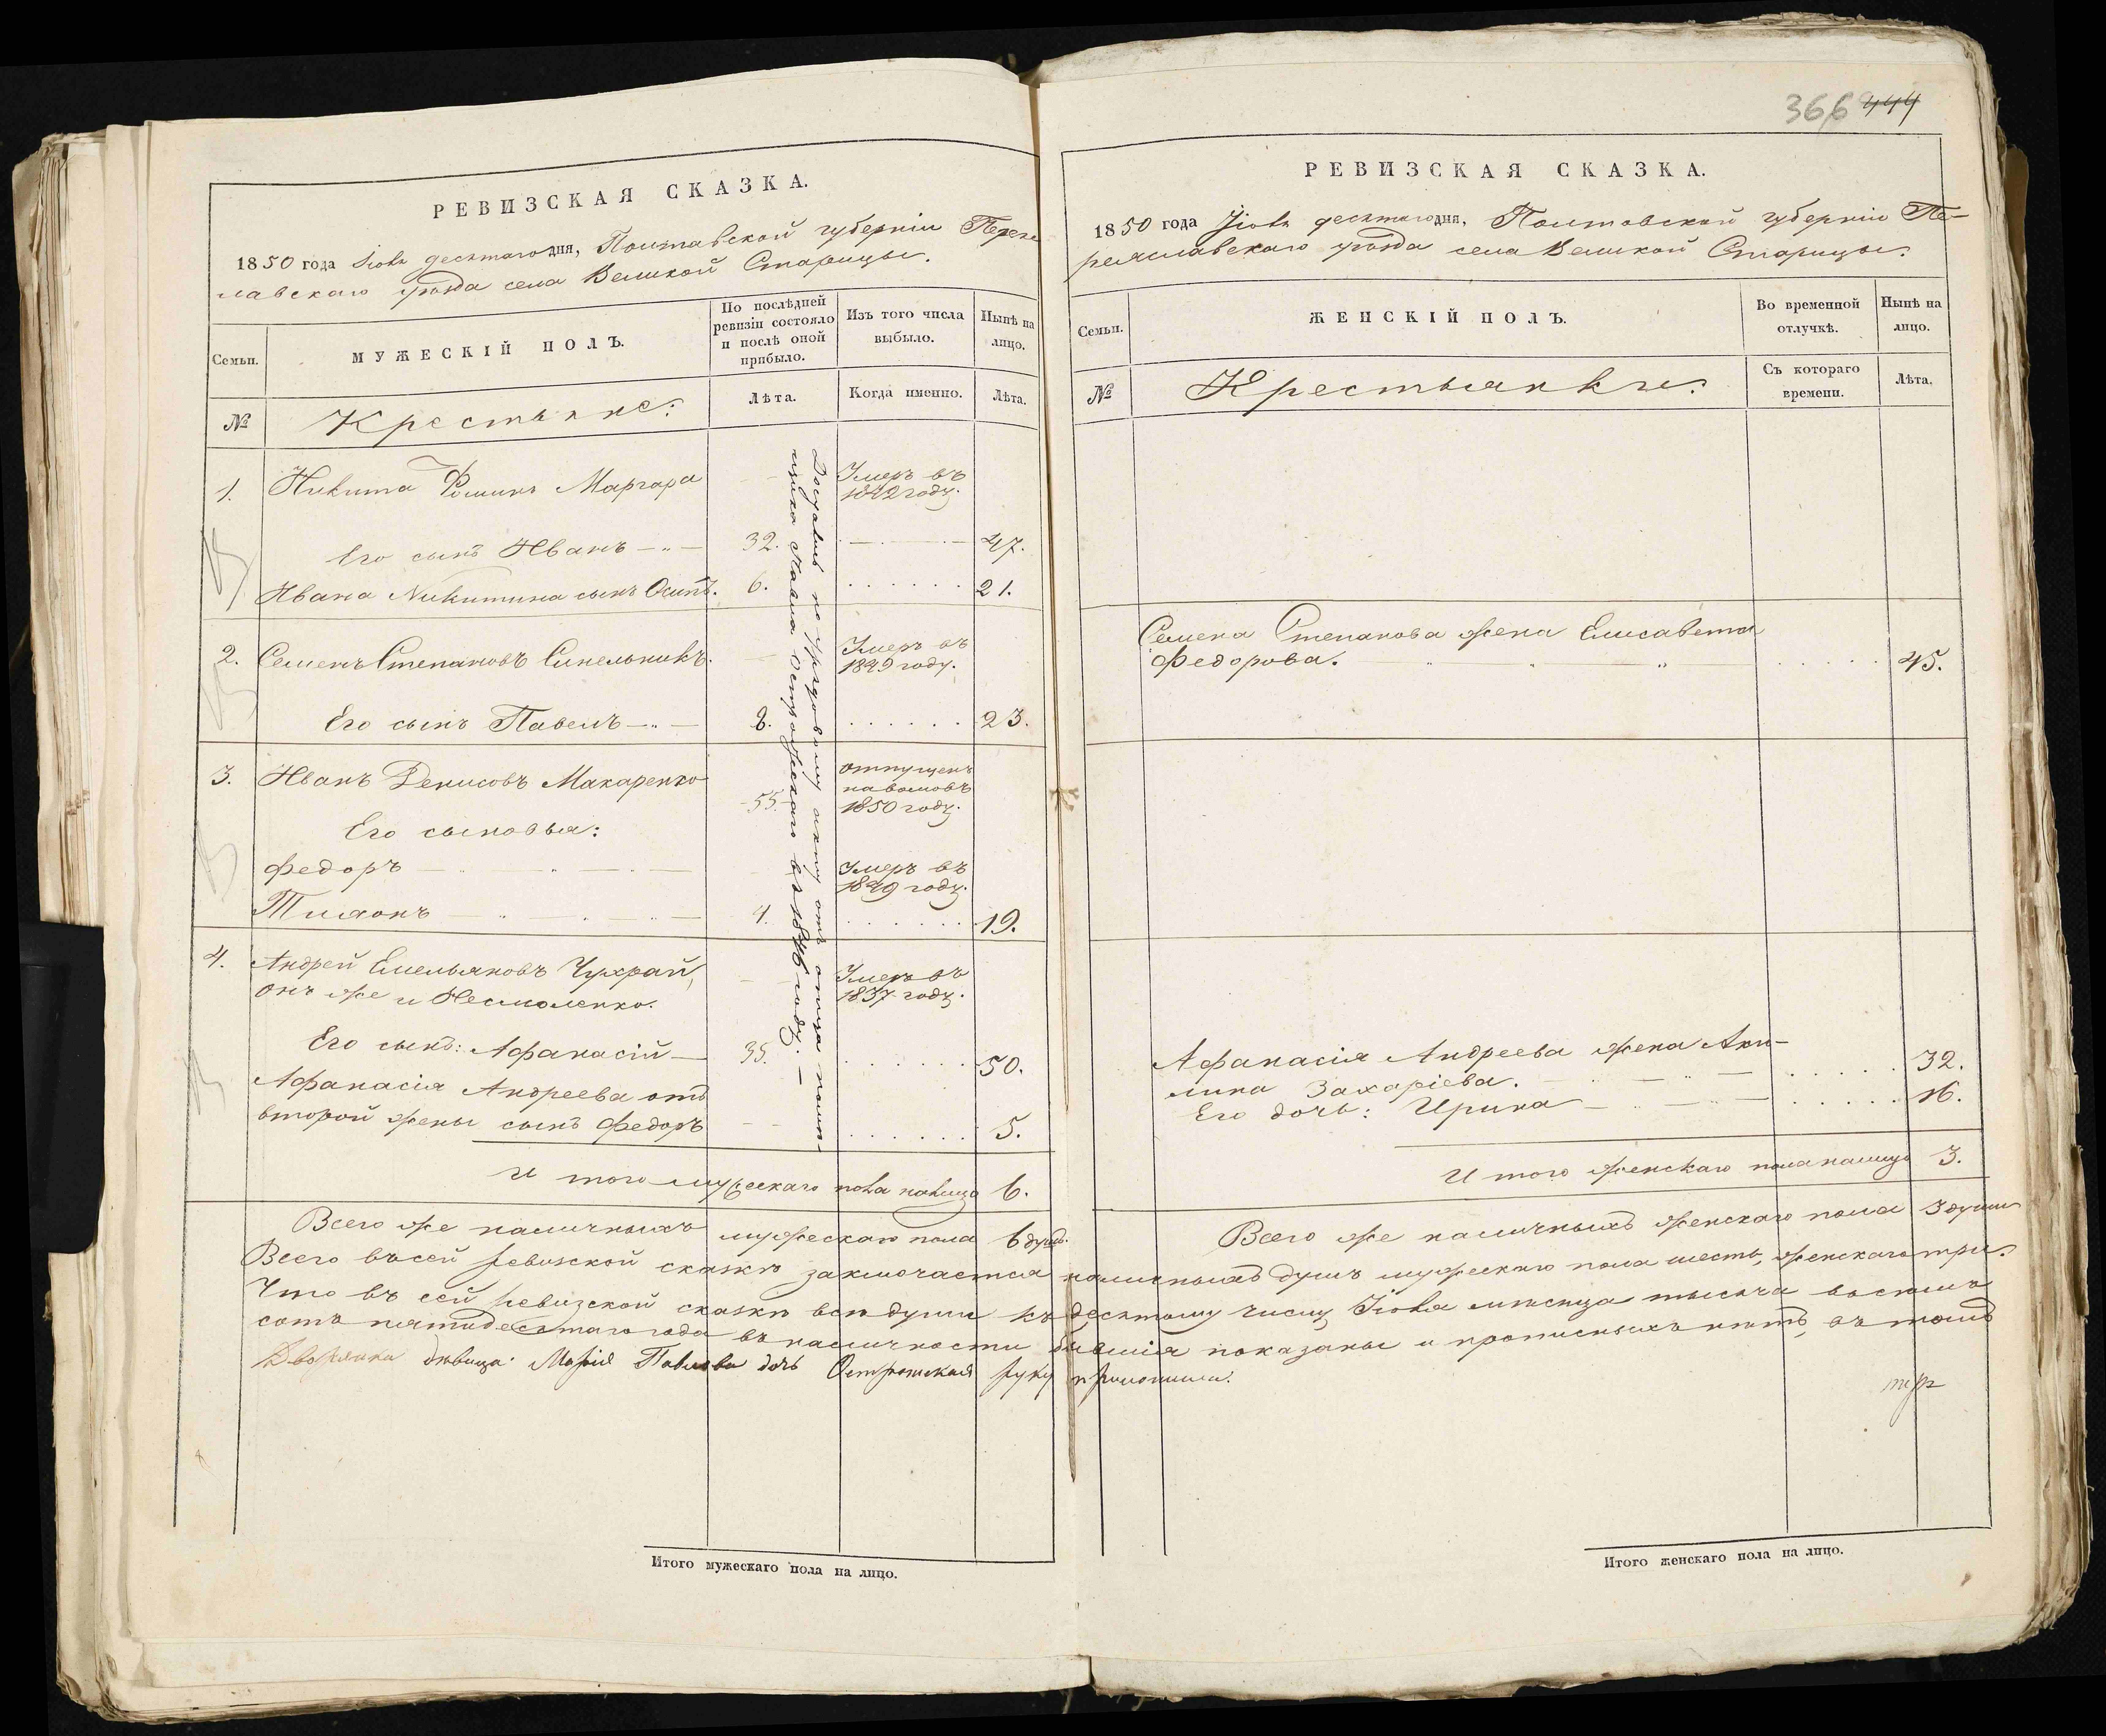 366 444
РЕВИЗСКАЯ СКАЗКА.
1850 года Іюня десятаго дня, Полтавской губерніи Перея
славскаго уѣзда села Великой Старицы.
Семьи.
МУЖЕСКІЙ ПОЛЪ.
По послѣдней ревизіи состояло и послѣ оной прибыло.
Изъ того числа выбыло.
Нынѣ на лицо.
№
Крестьяне:
Лѣта.
Когда именно.
Лѣта.
Досталис по урядовому акту отъ отца помѣ-
щика Павла Остро́жскаго въ 1846 году. —
1. Никита Фоминъ Маргара - Умеръ въ
1842 году.
Его сынъ Иванъ 32. 47.
Ивана Никитина сынъ Осипъ. 6. 21.
2. Семенъ Степановъ Синельникъ. - Умеръ въ
1849 году.
Его сынъ Павелъ 8. 23.
3. Иванъ Денисовъ Макаренко 55. отпущенъ
на волю въ
1850 году.
Его сыновья:
Федоръ Умеръ въ
1849 году.
Тимонъ 4. 19.
4. Андрей Емельяновъ Чухрай, - Умеръ въ
онъ же и Несмоленко. 1837 году.
Его сынъ: Афанасій 35. 50.
Афанасія Андреева отъ
второй жены сынъ Федоръ - 5.
И того мужескаго пола налицо 6.
Всего же наличныхъ мужескаго пола 6 душъ.
РЕВИЗСКАЯ СКАЗКА.
1850 года Іюня десятаго дня, Полтавской губерніи Пе-
реяславскаго уѣзда села Великой Старицы.
Семьи.
ЖЕНСКІЙ ПОЛЪ.
Во временной отлучкѣ.
Нынѣ на лицо.
№
Крестьянки:
Съ котораго времени.
Лѣта.
Семена Степанова жена Елисавета
Федорова. 45.
Афанасія Андреева жена Аки-
лина Захаріева. 32.
Его дочь: Ирина 16.
И того женскаго пола налицо 3.
Всего же наличныхъ женскаго пола 3 души
Всего въ сей ревизской сказкѣ заключается наличныхъ душъ мужескаго пола шесть, женскаго три.
Что въ сей ревизской сказкѣ всѣ души къ десятому числу Іюня мѣсяца тысяча восемь
сотъ пятидесятаго года въ наличности бывшія показаны и прописныхъ нѣтъ, въ томъ
Дворянка дѣвица Марія Павлова дочь Острожская руку приложила.
Итого мужескаго пола на лицо.
Итого женскаго пола на лицо.